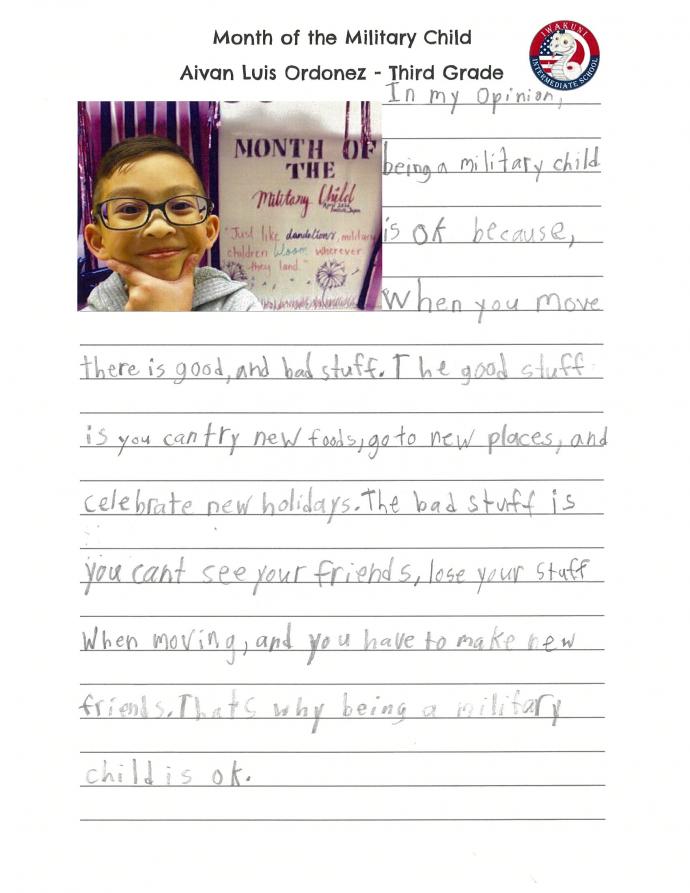 Month of the Military Child
Aivan Luis Ordonez - Third Grade
IWAKUNI
INTERMEDIATE SCHOOL
MONTH OF
THE
Military Child
"Just like dandelions, military
children bloom wherever
they land."
In my Opinion,
being a military child
is ok because,
When you move
there is good, and bad stuff. The good stuff
is you can try new foods, go to new places, and
celebrate new holidays. The bad stuff is
you cant see your friends, lose your stuff
When moving, and you have to make new
friends. Thats why being a military
child is ok.